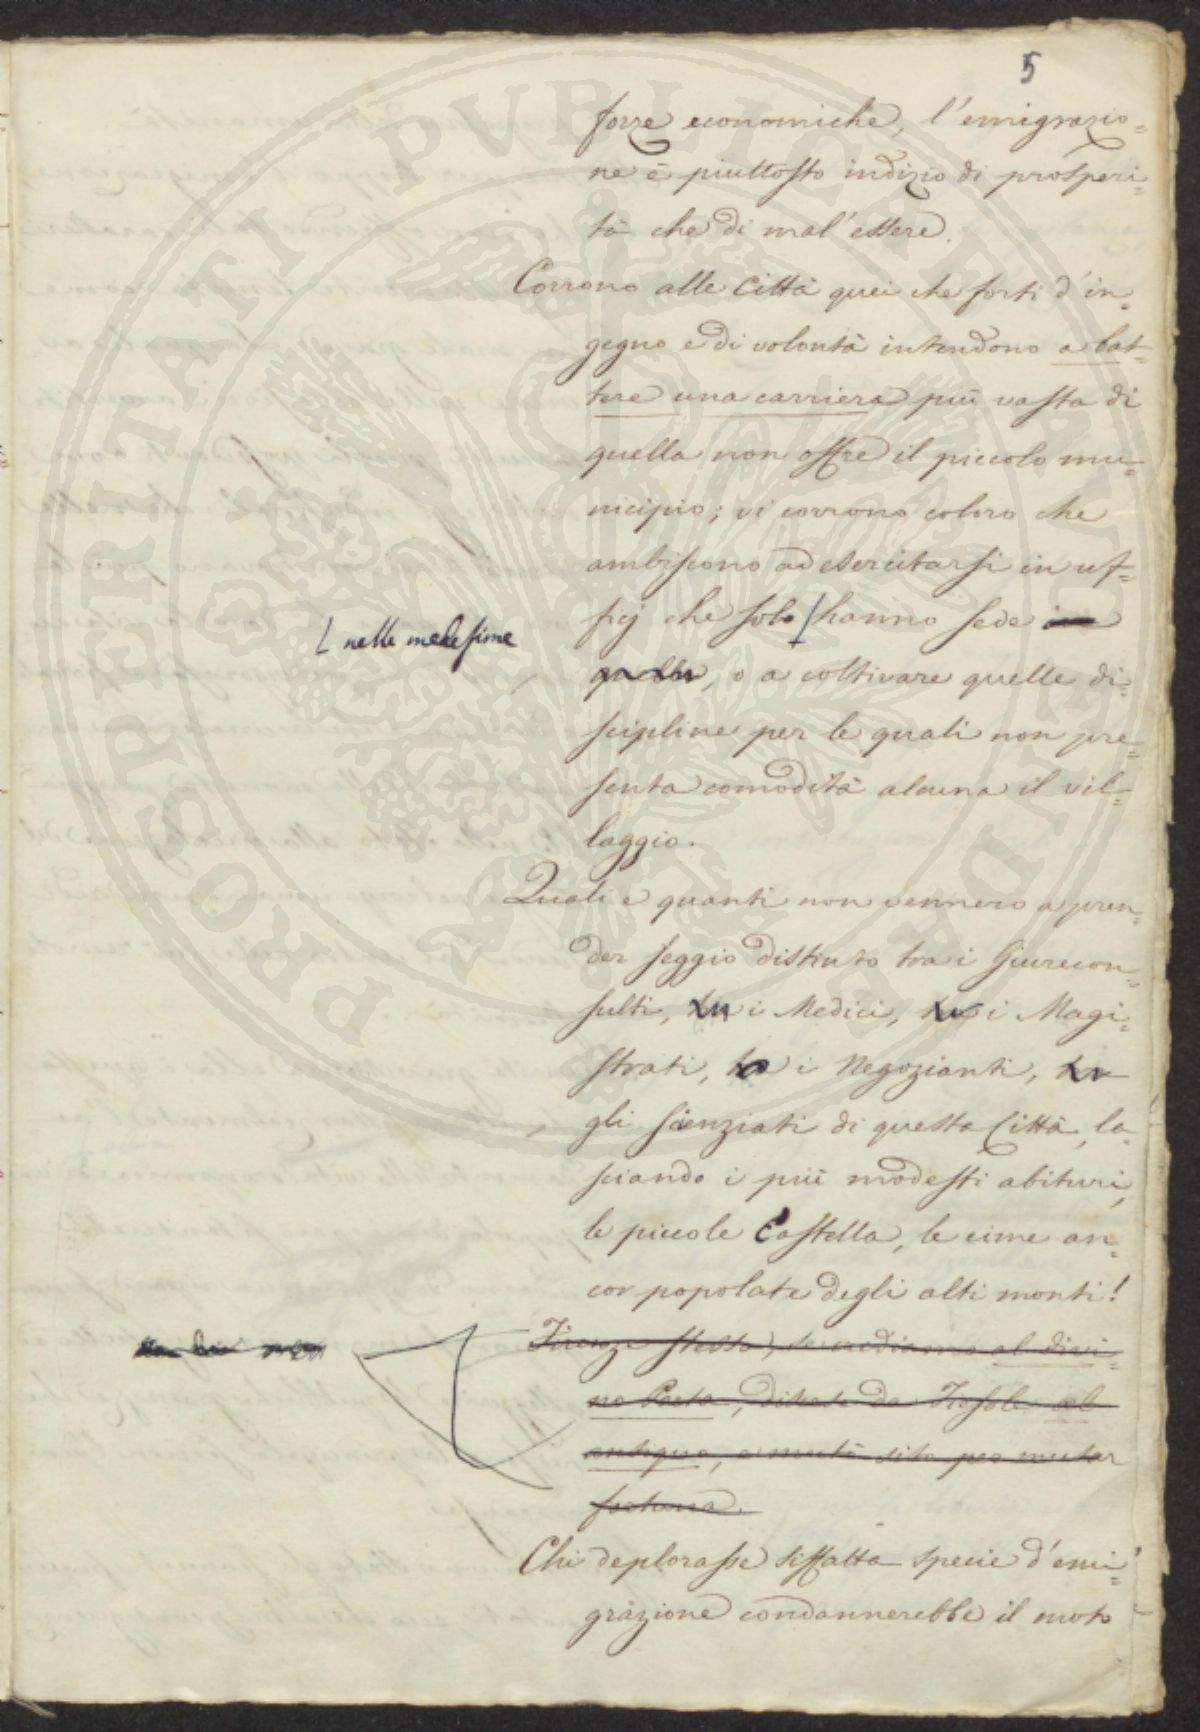 5
forze economiche, l'emigrazio=
ne è piuttosto indizio di prosperi=
tà che di mal'essere.
Corrono alle Città quei che forti d'in=
gegno e di volontà intendono a bat=
tere una carriera più vasta di
quella non offre il piccolo mu=
nicipio; vi corrono coloro che
ambiscono ad esercitarsi in uf=
ficj che solo hanno sede in
nelle medesime
quelle, o a coltivare quelle di=
scipline per le quali non pre=
senta comodità alcuna il vil=
laggio.
Quali e quanti non vennero a pren=
der seggio distinto tra i Giurecon=
sulti, tra i Medici, tra i Magi=
strati, tra i Negozianti, tra
gli scienziati di questa Città, la=
sciando i più modesti abituri,
le piccole Castella, le cime an=
cor popolate degli alti monti!
Firenze stessa, se crediamo al divi=
no Poeta, discese da Fiesole ab
antiquo, e mutò sito per mutar
fortuna.
Chi deplorasse siffatta specie d'emi=
grazione condannerebbe il moto
PROSPERITATI PVBLICAE